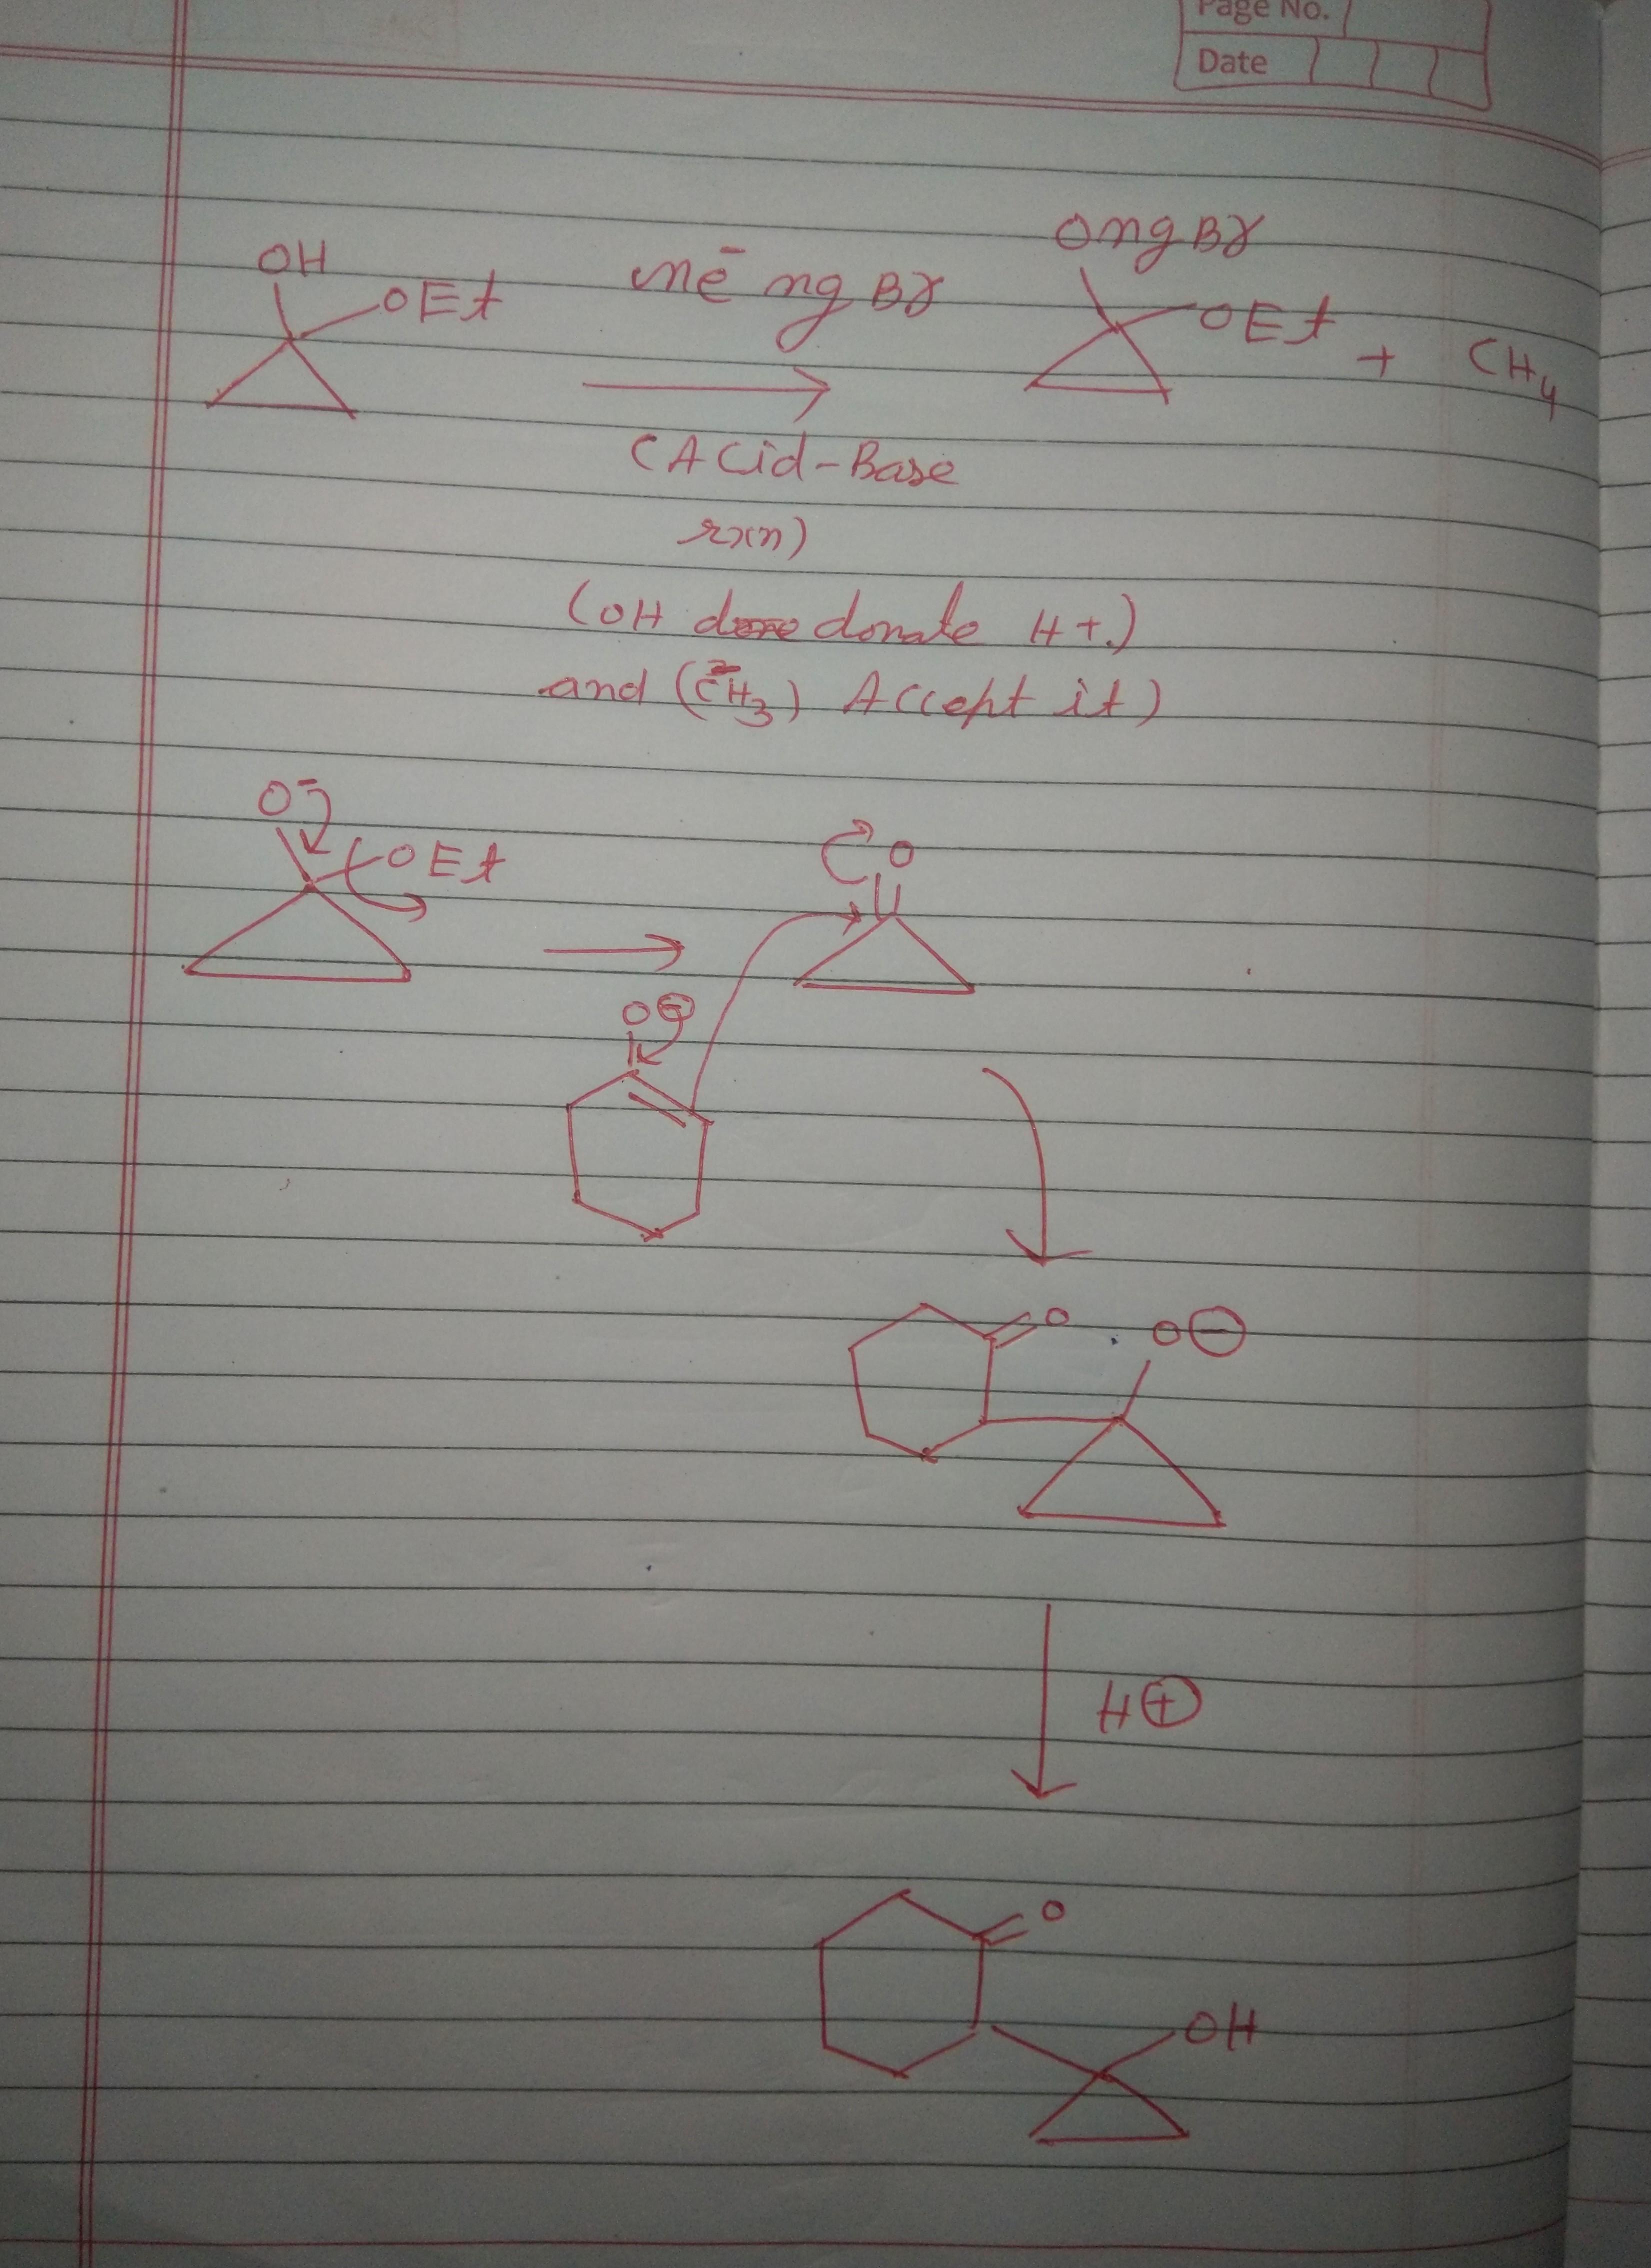 Page No.
Date
OH
OEt
Me MgBr
OMgBr
OEt
+ CH4
(Acid-Base
rxn)
(OH donate H+.)
and (CH3) Accept it)
O-
OEt
O
O⊖
O
O⊖
H⊕
O
OH